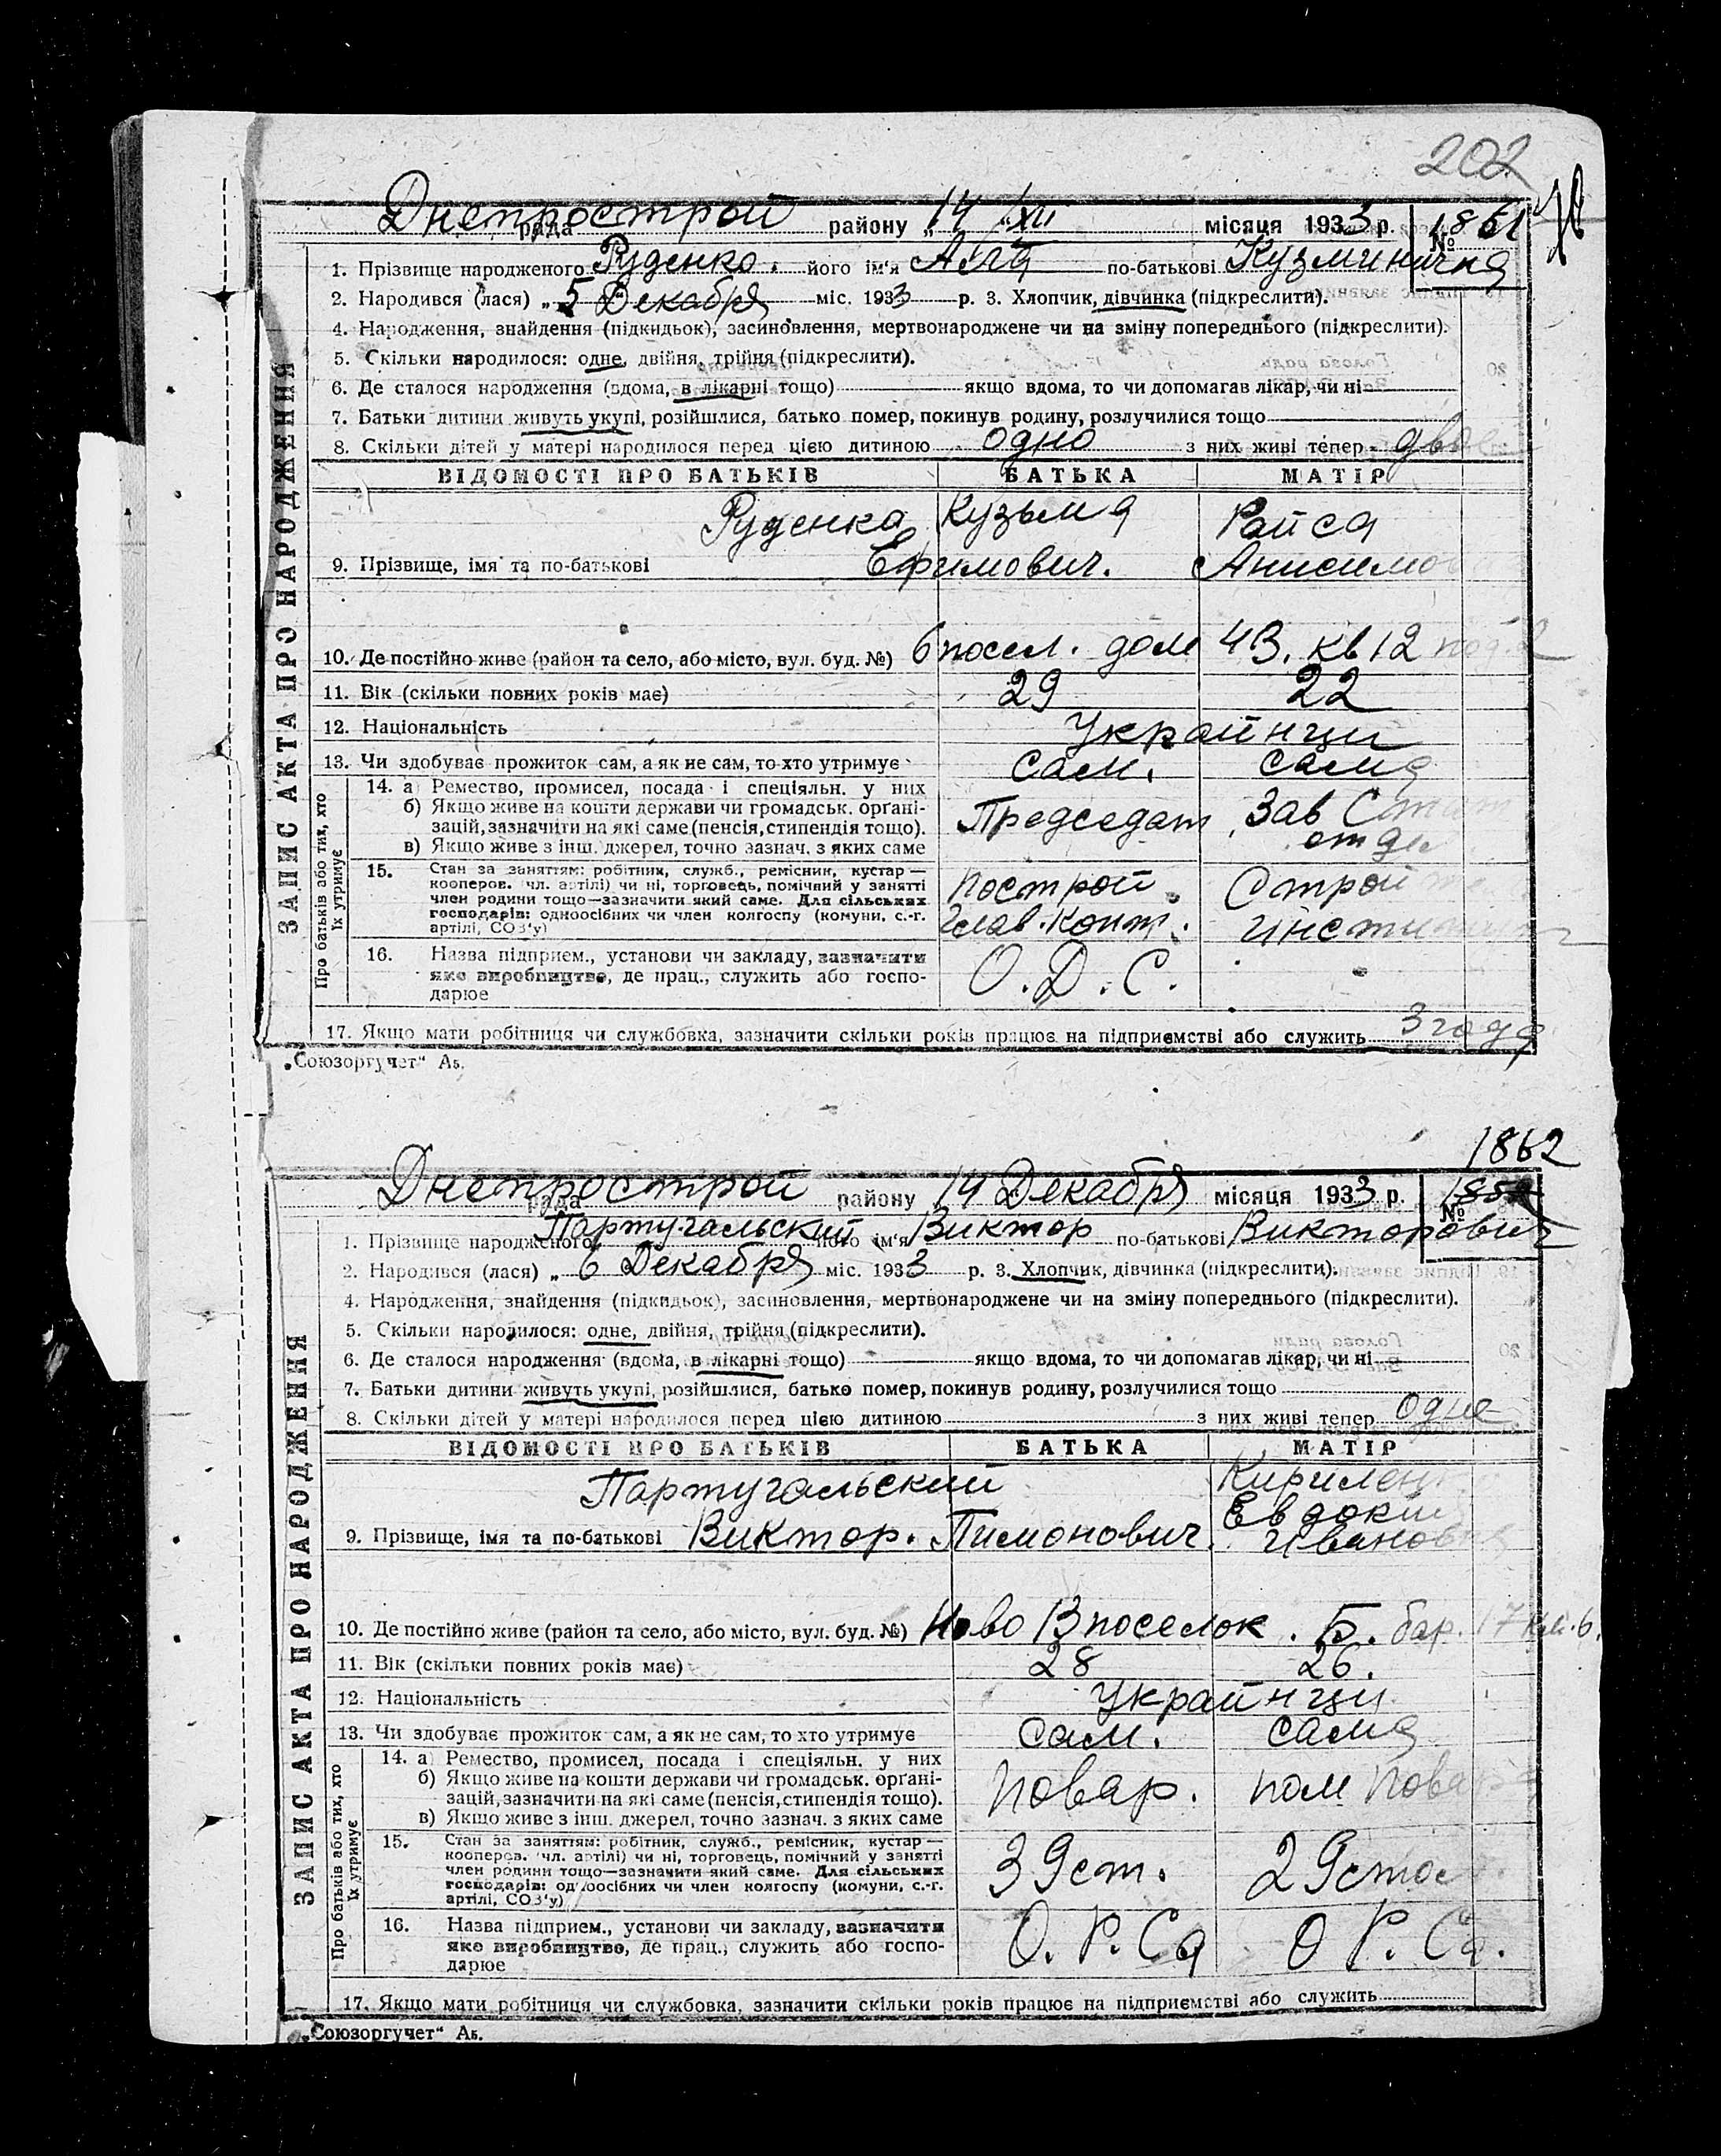 202
Днепрострой
рада району „14 "XII місяця 1933 р. № 1861
1. Прізвище народженого Руденко. його ім'я по-батькові Кузминична
2. Народився (лася) „ 5 Декабря міс. 1933 р. 3. Хлопчик, дівчинка (підкреслити).
4. Народження, знайдення (підкидьок), засиновлення, мертвонароджене чи на зміну попереднього (підкреслити).
5. Скільки народилося: одне, двійня, трійня (підкреслити).
6. Де сталося народження (вдома, в лікарні тощо) якщо вдома, то чи допомагав лікар, чи ні
7. Батьки дитини живуть укупі, розійшлися, батько помер, покинув родину, розлучилися тощо
8. Скільки дітей у матері народилося перед цією дитиною одно з них живі тепер двое
ЗАПИС АКТА ПРО НАРОДЖЕННЯ
ВІДОМОСТІ ПРО БАТЬКІВ БАТЬКА МАТІР
Руденка Кузьма Раиса
9. Прізвище, імя та по-батькові Ефимович. Анисимов
10. Де постійно живе (район та село, або місто, вул. буд. №) 6 посел. дом 43. кв 12 под. 2
11. Вік (скільки повних років має) 29 22
12. Національність Украинци
13. Чи здобуває прожиток сам, а як не сам, то хто утримує сам. сама
Про батьків або тих, хто їх утримує
14. а) Ремество, промисел, посада і спеціяльн. у них
б) Якщо живе на кошти держави чи громадськ. органі-
зацій, зазначити на які саме (пенсія, стипендія тощо). Председат. Зав
в) Якщо живе з інш. джерел, точно зазнач. з яких саме
15. Стан за заняттям: робітник, служб., ремісник, кустар—
кооперов. (чл. артілі) чи ні, торговець, помічний у занятті
член родини тощо—зазначити який саме. Для сільських
господарів: одноосібних чи член колгоспу (комуни, с.-г.
артілі, СОЗ'у)
построй Строй
Глав. Конт.
16. Назва підприєм., установи чи закладу, зазначити
яке виробництво, де прац., служить або госпо-
дарює
О. Д. С.
17. Якщо мати робітниця чи службовка, зазначити скільки років працює на підприємстві або служить 3 года
„Союзоргучет" Аб.
1862
Днепрострой
рада району 14 Декабря місяця 1933 р. №
1. Прізвище народженого Партугальский його ім'я Виктор по-батькові Викторович
2. Народився (лася) „ 6 Декабря міс. 1933 р. 3. Хлопчик, дівчинка (підкреслити).
4. Народження, знайдення (підкидьок), засиновлення, мертвонароджене чи на зміну попереднього (підкреслити).
5. Скільки народилося: одне, двійня, трійня (підкреслити).
6. Де сталося народження (вдома, в лікарні тощо) якщо вдома, то чи допомагав лікар, чи ні
7. Батьки дитини живуть укупі, розійшлися, батько помер, покинув родину, розлучилися тощо
8. Скільки дітей у матері народилося перед цією дитиною з них живі тепер одне
ЗАПИС АКТА ПРО НАРОДЖЕННЯ
ВІДОМОСТІ ПРО БАТЬКІВ БАТЬКА МАТІР
Партугальский Кириленк
Евдоки
9. Прізвище, імя та по-батькові Виктор. Пимонович. Ивановна
10. Де постійно живе (район та село, або місто, вул. буд. №) Ново 13 поселок. Б. бар. 17 6.
11. Вік (скільки повних років має) 28 26.
12. Національність Украинци
13. Чи здобуває прожиток сам, а як не сам, то хто утримує сам. сама
Про батьків або тих, хто їх утримує
14. а) Ремество, промисел, посада і спеціяльн. у них
б) Якщо живе на кошти держави чи громадськ. органі-
зацій, зазначити на які саме (пенсія, стипендія тощо). повар. пом повара
в) Якщо живе з інш. джерел, точно зазнач. з яких саме
15. Стан за заняттям: робітник, служб., ремісник, кустар—
кооперов. (чл. артілі) чи ні, торговець, помічний у занятті
член родини тощо—зазначити який саме. Для сільських
господарів: одноосібних чи член колгоспу (комуни, с.-г.
артілі, СОЗ'у)
16. Назва підприєм., установи чи закладу, зазначити
яке виробництво, де прац., служить або госпо-
дарює
О. Р. Са О Р. Са.
17. Якщо мати робітниця чи службовка, зазначити скільки років працює на підприємстві або служить
„Союзоргучет" Аб.